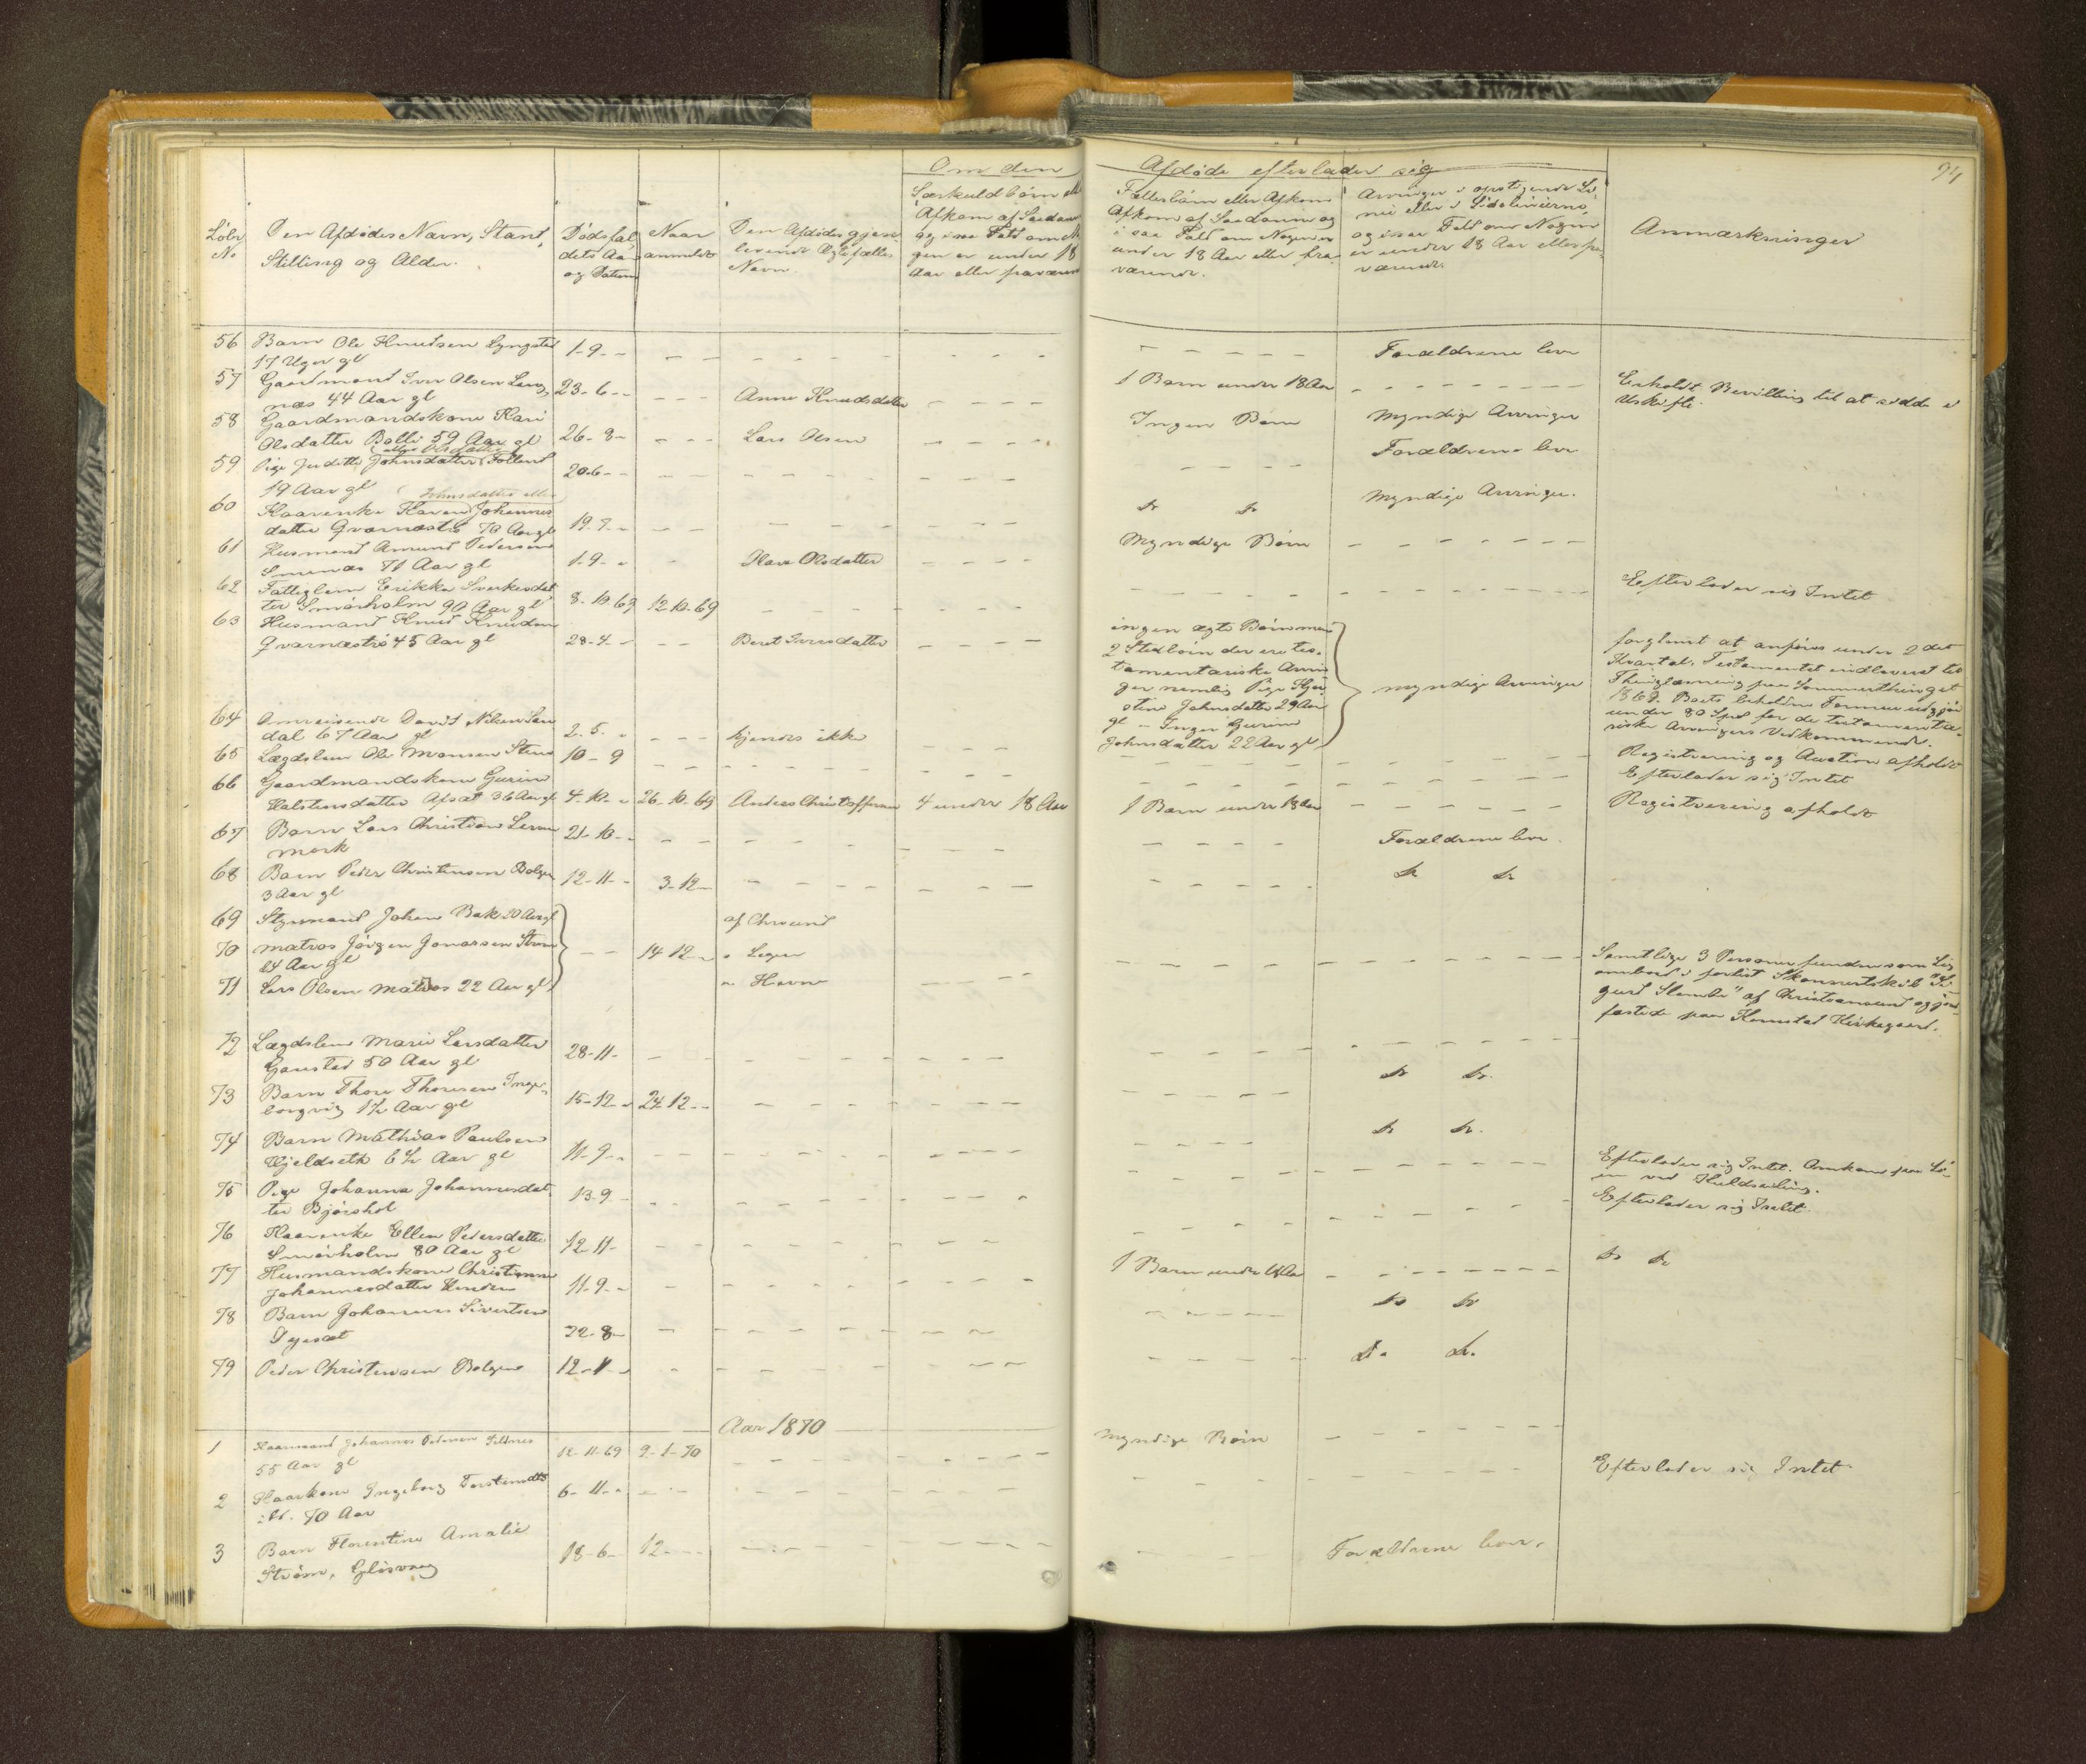 94
Om den Afdøde efterlader sig
Løbe
No
Den Afdødes Navn, Stand,
Stilling og Alder.
Dødsfal
dets Aar
og Datum
Naar
anmeldt
Den Afdødes gjen
levende Ægtefælles
Navn.
Særkuldbørn ell
Afkom af Saadan
og i saa Fald om No
gen er under 18
Aar eller fraværen
Fællesbørn eller Afkom
Afkom af Saadanne og
i saa Fald om Nogen er
under 18 Aar eller fra
værende.
Arvinger i opstigende Li
nie eller i Sidelinierne,
og i saa Fald om Nogen
er under 18 Aar eller fra
værende.
Anmærkninger
56 Barn Ole Knudsen Lyngstad 1-9- Forældrene leve
17 Uger gl
57 Gaardmand Iver Olsen 23-6- Anne Knudsdatter 1 Barn under 18 Aar Erholdt Bevilling til at sidde i
næs 44 Aar gl Uskifte.
58 Gaardmandskone Kari
Olsdatter Bolli 59 Aar gl 26-8- Lars Olsen Ingen Børn Myndige Arvinger
59 Pige Judithe Johnsdatter (eller Olsdatter) Folland 20-6- Forældrene leve
19 Aar gl
60 Kaarenke Karen (Johnsdatter eller) Johannes
datter Qvarnæstrø 70 Aar gl 19-7- do do Myndige Arvinger.
61 Husmand Amund Pedersen
Smenæs 71 Aar gl 1-9- Olsdatter Myndige Børn
62 Fattiglem Erikka Sverkesdat
ter Smørholm 90 Aar gl 8-10-69 12-10-69 Efterlader sig Intet
63 Husmand Knud Knudsen
Qvarnæstrø 45 Aar gl 28-4- Beret Iversdatter
ingen ægte Børn men
2 Stedbørn der ere tes-
tamentariske Arvin
ger nemlig Pige Kjer
stine Johnsdatter 29 Aar
gl - Inger Gurine
Johnsdatter 22 Aar gl
Myndige Arvinger
forglemt at anføres under 2det
Kvartal. Testamentet indleveret til
Thinglæsning paa Sommerthinget
1869. Boets beholdne Formue udgjør
under 80 Spd for de testamenta-
riske Arvingers Vedkommende.
64 Omreisende David Nilsen
dal 67 Aar gl 2-5- kjendes ikke
Registrering og Auction afholdt
65 Lægdslem Ole Monsen 10-9 Efterlader sig Intet
66 Gaardmandskone Gurine
Halstensdatter 36 Aar gl 4-10- 26-10-69 Anders Christoffersen 4 under 18 Aar 1 Barn under 18 Aar Registrering afholdt
67 Barn Lars Christian 21-10- Forældrene leve.
mark
68 Barn Peder Christensen Bolgen 12-11- 3-12- do do
3 Aar gl
69 Styrmand Johan Bak 30 Aar gl af Chrsund
70 Matros Jørgen Jonassen Strøm 14-12- -
24 Aar gl
71 Lars Olsen Matros 22 Aar gl
Samtlige 3 Personer fundne som Lig
ombord i forlist Skonnertskib "Si
gurd Slembe" af Christiansund og jord
fæstede paa Kornstad Kirkegaard.
72 Lægdslem Marie Larsdatter
Gaustad 50 Aar gl 28-11-
73 Barn Thore Thoresen Inge-
borgvig 1½ Aar gl 15-12- 24-12- do do.
74 Barn Mathias Paulsen
Hjeldseth 6½ Aar gl 11-9- do do.
75 Pige Johanna Johannesdat
ter Bjørshol 13-9-
Efterlader sig Intet. Omkom paa Sø
en ved Kuldseiling.
76 Kaarenke Ellen Pedersdatter
Smørholm 80 Aar gl 12-11- Efterlader sig Intet.
77 Husmandskone Christianne
Johannesdatter 11-9- 1 Barn under do do
78 Barn Johannes Sivertsen
22-8- do do
79 Peder Christensen Bolgen 12-11- do. do.
Aar 1870
1 Kaarmand Johannes Pedersen
55 Aar gl 12-11-69 9-1-70 Myndige Børn
2 Kaarkone Ingeborg Torstensdtr
70 Aar 6-11- Efterlader sig Intet
3 Barn Florentine Amalie
Strøm, 18-6- 12- Forældrene lever.